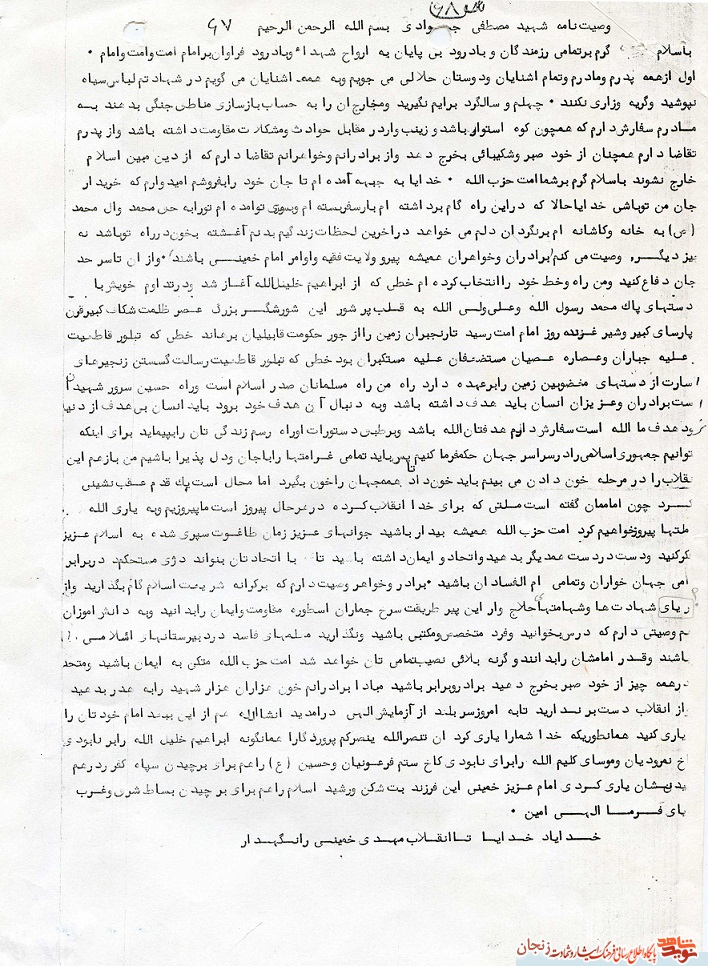 ۶۸
وصیت نامه شهید مصطفی جـوادی بسم الله الرحمن الرحیم ۶۷
باسلام گرم برتمامی رزمندگان و بادرود بی پایان به ارواح شهداء وبادرود فراوان برامام امت وامت وامام ۰
اول ازهمه پدرم ومادرم وتمام اشنایان ودوستان حلالی می جویم وبه همه اشنایان می گویم در شهاد تم لباس سیاه
نپوشید وگریه وزاری نکنند ۰ چهلم و سالگرد برایم نگیرید ومخارج ان را به حساب بازسازی مناطق جنگی بدهند بـه
مـادرم سفارش دارم که همچون کوه استوار باشد و زینب وار در مقابل حوادث ومشکلات مقاومت داشته باشد واز پدرم
تقاضا دارم همچنان از خود صبر وشکیبائی بخرج دهد واز برادرانم وخواهرانم تقاضا دارم که از دین مبین اسلام
خارج نشوند باسلام گرم برشما امت حزب الله ۰ خدایا به جبهه آمده ام تا جان خود رابفروشم امیدوارم که خریدار
جان من توباشی خدایاحالا که دراین راه گام برداشته ام بارسفربسته ام وبسوی توامده ام تورابه حق محمد وال محمد
(ص) به خانه وکاشانه ام برنگردان دلم می خواهد دراخرین لحظات زندگیم بدنم آغشته بخون درراه توباشد نه
چیز دیگر، وصیت می کنم ابرادران وخواهران همیشه پیرو ولایت فقیه واوامر امام خمینی باشند ۰ واز ان تاسرحد
جان دفاع کنید ومن راه وخط خود راانتخاب کرده ام خطی که از ابراهیم خلیل الله آغاز شد ودرتداوم خویش با
دستهای پاک محمد رسول الله وعلی ولی الله به قلب پرشور این شورشگر بزرگ عصر ظلمت شکاف کبیر قرن
پارسای کبیر وشیر غرنده روز امام امت رسید تارنجبران زمین رااز جور حکومت قابیلیان برهاند خطی که تبلور قاطعیت
علیه جباران وعصاره عصیان مستضعفان علیه مستکبران بود خطی که تبلور قاطعیت رسالت گسستن زنجیرهای
اسارت از دستهای مغضوبین زمین رابرعهده دارد راه من راه مسلمانان صدر اسلام است وراه حسین سرور شهیدان
است برادران وعزیزان انسان باید هدف داشته باشد وبه دنبال آن هدف خود برود باید انسان بی هدف از دنیا
نرود هدف ما الله است سفارش دارم هدفتان الله باشد وبرطبق دستورات اوراه رسم زندگی تان رابپیماید برای اینکه
توانیم جمهوری اسلامی رادرسراسر جهان حکمفرما کنیم پس باید تمامی غرامتها راباجان ودل پذیرا باشیم من بازهم این
نقلاب را در مرحله خون دادن می بینم باید خون داد تا همه جهان راخون بگیرد اما محال است یک قدم عقب نشینی
کرد چون امامان گفته است ملتی که برای خدا انقلاب کرده درهرحال پیروز است ما پیروزیم وبه یاری الله
ملتها پیروز خواهیم کرد امت حزب الله همیشه بیدار باشید جوانهای عزیز زمان طاغوت سپری شده به اسلام عزیز
کرکنید ودست دردست همدیگر بدهید واتحاد و ایمان داشته باشید تا با اتحادتان بتواند دژی مستحکم دربرابر
امی جهان خواران وتمامی ام الفساد ان باشید ۰ برادر وخواهر وصیت دارم که برکرانه شریعت اسلام گام بگذارید واز
ریای شهادت ها وشهامتها حلاج وار این پیر طریقت سرخ جماران اسطوره مقاومت وایمان رابدانید وبه دانش اموزان
هم وصیتی دارم که درس بخوانید وفرد متخصص ومکتبی باشید ونگذارید معلمهای فاسد دردبیرستانهای اسلامی
باشند وقدر امامشان رابدانند وگرنه بلائی نصیب تمامی تان خواهد شد امت حزب الله متکی به ایمان باشید ومتحد
درهمه چیز از خود صبر بخرج دهید برادر وبرابر باشید مبادا برادرانم خون هزاران هزار شهید رابه هدر بدهید
واز انقلاب دست برندارید تابه امروز سربلند از آزمایش الهی درامدید انشاالله هم از این ببعد امام خودتان را
یاری کنید همانطوریکه خدا شمارا یاری کرد ان تنصرالله ینصرکم پروردگارا همانگونه ابراهیم خلیل الله رابر نابودی
اخ نمرودیان وموسای کلیم الله رابرای نابودی کاخ ستم فرعونیان وحسین (ع) راهم برای برچیدن سپاه کفر درهم
یاری کردی امام عزیز خمینی این فرزند بت شکن ورشید اسلام راهم برای برچیدن بساط شرق وغرب
یای فـرمـا الهـی امین ۰
خـدایا خدایـا تـا انقلاب مهـدی خمینی رانگهـدار
نوید شاهد پایگاه اطلاع رسانی فرهنگ ایثار و شهادت زنجان